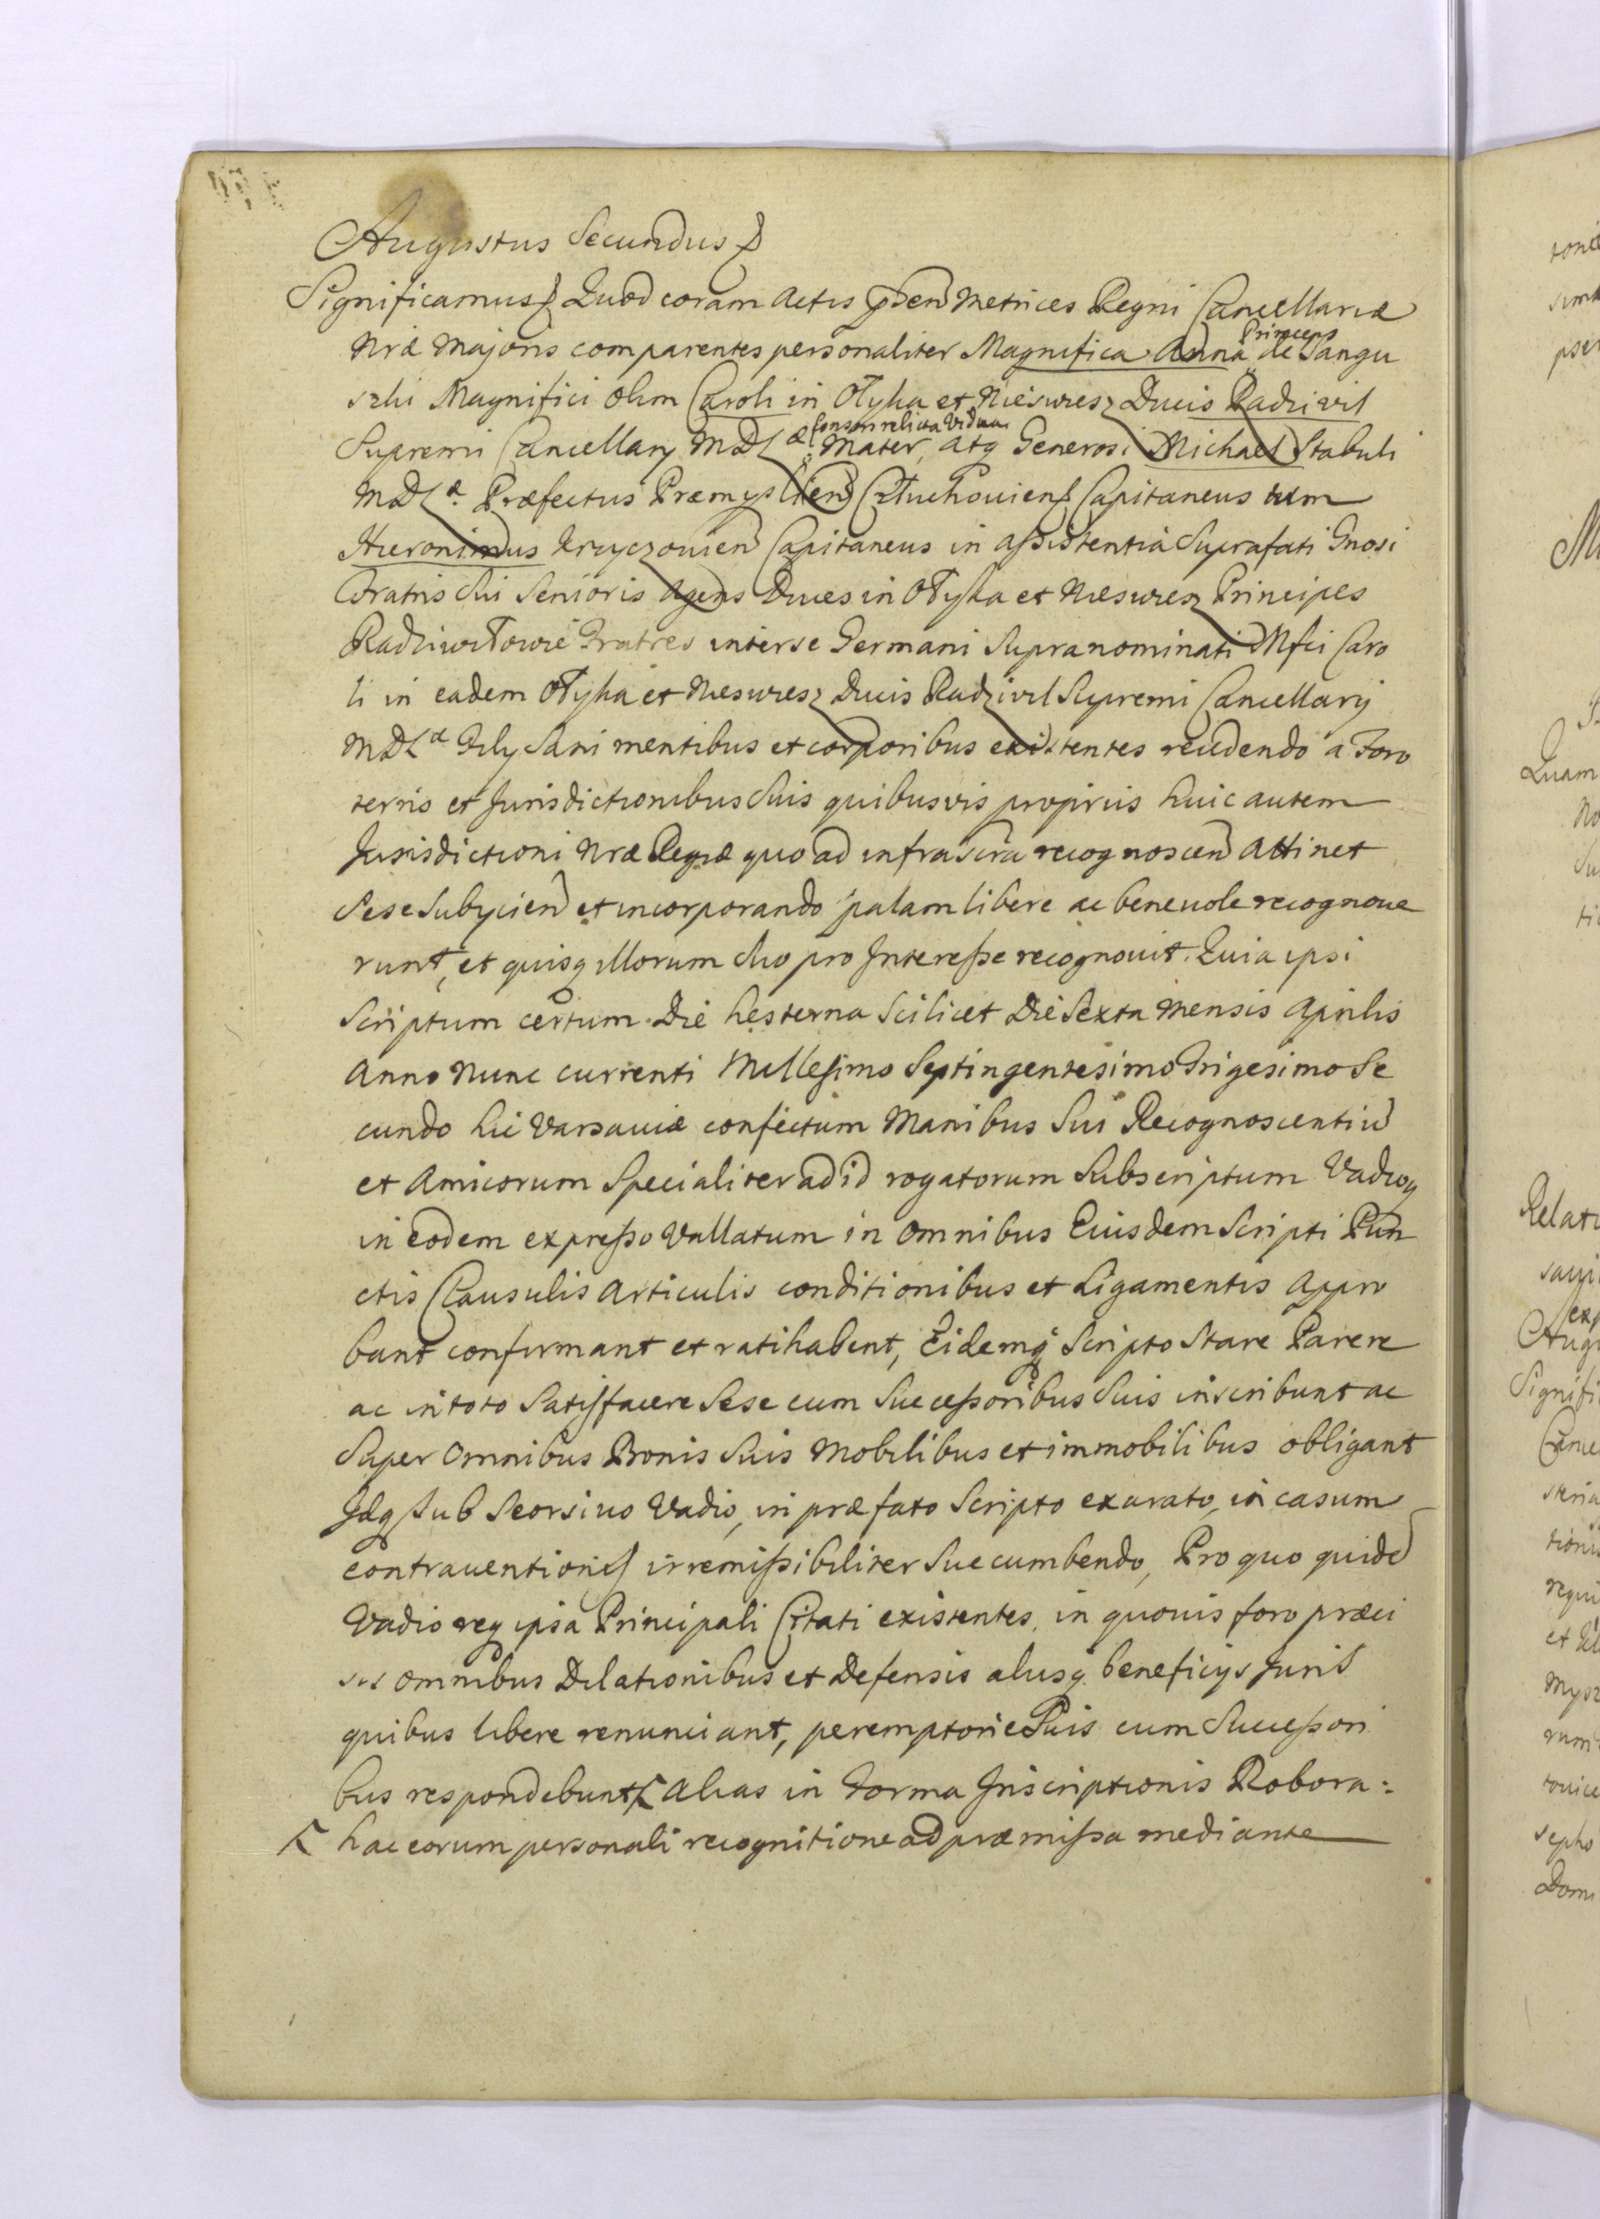 Augustus Secundus
Significamus Quod coram Actis pñsen Metrices Regni Cancellariæ
Nræ Majoris comparentes personaliter Magnifica Anna Princeps de Sangu
szki Magnifici olim Caroli in Ołyka et Nieswiesz Ducis Radzivil
Supremi Cancellarij MDLæ Consors relicta Vidua Mater, atq Generosi Michael Stabuli
MDLæ Præfectus Præmyslien Człuchouiens Capitaneus tum
Hieronimus Kryczouien Capitaneus in assistentia Suprafati Gnosi
Fratris Sui Senioris Agens Duces in Ołyka et Nieswiesz Principes
Radziwiłowie Fratres inter se Germani Supranominati Mfci Caro
li in eadem Ołyka et Nieswiesz Ducis Radzivil Supremi Cancellarij
MDLæ Filij Sani mentibus et corporibus existentes recedendo a Foro
terris et Jurisdictionibus Suis quibusvis proprijs huic autem
Jurisdictioni Nræ Regiæ quo ad infrascra recognoscen Attinet
Sese Subijcien et incorporando palam libere ac beneuole recognoue
runt, et quisq illorum Suo pro Interesse recognouit. Quia ipsi
Scriptum certum Die hesterna Scilicet Die Sexta Mensis Aprilis
Anno Nunc currenti Millesimo Septingentesimo Trigesimo Se
cundo hic Varsauiæ confectum Manibus Sui Recognoscentiu
et Amicorum Specialiter ad id rogatorum Subscriptum Vadioq
in eodem expresso Vallatum in Omnibus Eiusdem Scripti Pun
ctis Clausulis Articulis conditionibus et Ligamentis Appro
bant confirmant et ratihabent, Eidemq Scripto Stare Parere
ac in toto Satisfacere Sese cum Successoribus Suis inscribunt ac
Super Omnibus Bonis Suis Mobilibus et immobilibus obligant
Idq Sub Seorsiuo Vadio, in præfato Scripto exarato, in casum
contrauentionis irremissibiliter Succumbendo, Pro quo quide
Vadio req ipsa Principali Citati existentes, in quouis foro præci
sis Omnibus Dilationibus et Defensis alijsq beneficijs Juris
quibus libere renunciant, peremptorie Suis cum Successori
bus respondebunt Alias in Forma Inscriptionis Robora:
hac eorum personali recognitione ad præmissa mediante